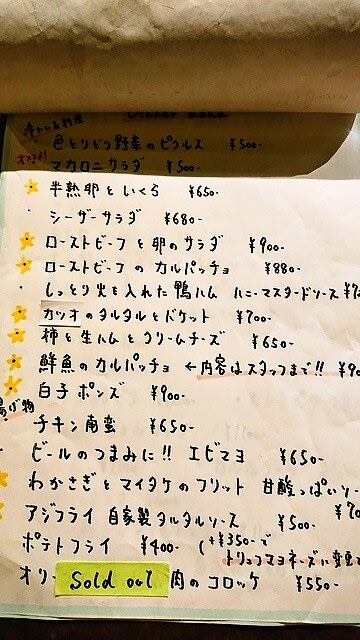 Dinner menu
冷たいお料理
色とりどり野菜のピクルス ¥500-
オススメ!
マカロニサラダ ¥500-
半熟卵といくら ¥650-
シーザーサラダ ¥680-
ローストビーフと卵のサラダ ¥900-
ローストビーフのカルパッチョ ¥880-
しっとり火を入れた鴨ハム ハニーマスタードソース ¥7
カツオのタルタルとバケット ¥700-
柿と生ハムとクリームチーズ ¥650-
鮮魚のカルパッチョ ←内容はスタッフまで!! ¥90
白子ポンズ ¥900-
揚げ物
チキン南蛮 ¥650-
ビールのつまみに!! エビマヨ ¥650-
わかさぎとマイタケのフリット 甘酸っぱいソー
¥70
アジフライ 自家製タルタルソース ¥500-
ポテトフライ ¥400- (+¥350-で
トリュフマヨネーズに変更
オリ Sold out 肉のコロッケ ¥550-